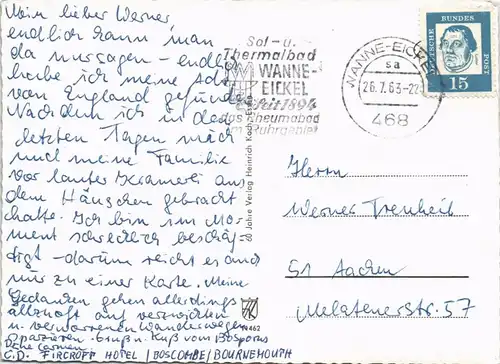 Mein lieber Werner
endlich kann man
da nur sagen - endlich
habe ich meine
von England gefunden
Nachdem ich in den
letzten Tagen mich
und meine Familie
vor lauter Kramerei aus
dem Häuschen gebracht
hatte. Ich bin im Mo-
ment schrecklich beschäf-
tigt - darum reicht es auch
nur zu einer Karte. Meine
Gedanken gehen allerdings
allzuoft auf verzwickten
u. verworrenen Wanderwegen
spazieren. Gruß u. Kuß vom Bosporus
Carmen
C.D. FIRCROFT HOTEL / BOSCOMBE / BOURNEMOUTH
Sol- u.
Thermalbad
WANNE-
EICKEL
seit 1894
das Rheumabad
im Ruhrgebiet
WANNE-EICKEL
sa
26.7.63-22
468
DEUTSCHE BUNDESPOST
15
60 Jahre Verlag Heinrich Koch, Essen
Herrn
Werner Trenheit
51 Aachen
Melatenerstr. 57